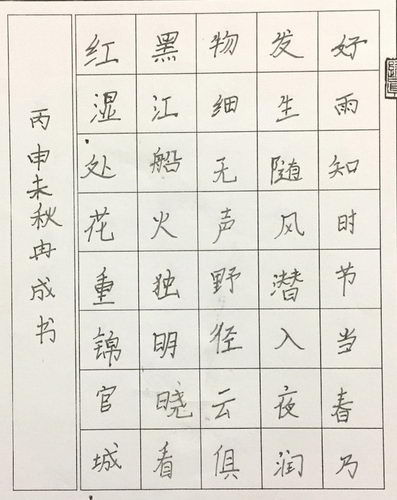 好雨知时节当春乃
发生随风潜入夜润
物细无声野径云俱
黑江船火独明晓看
红湿处花重锦官城
丙申未秋冉成书